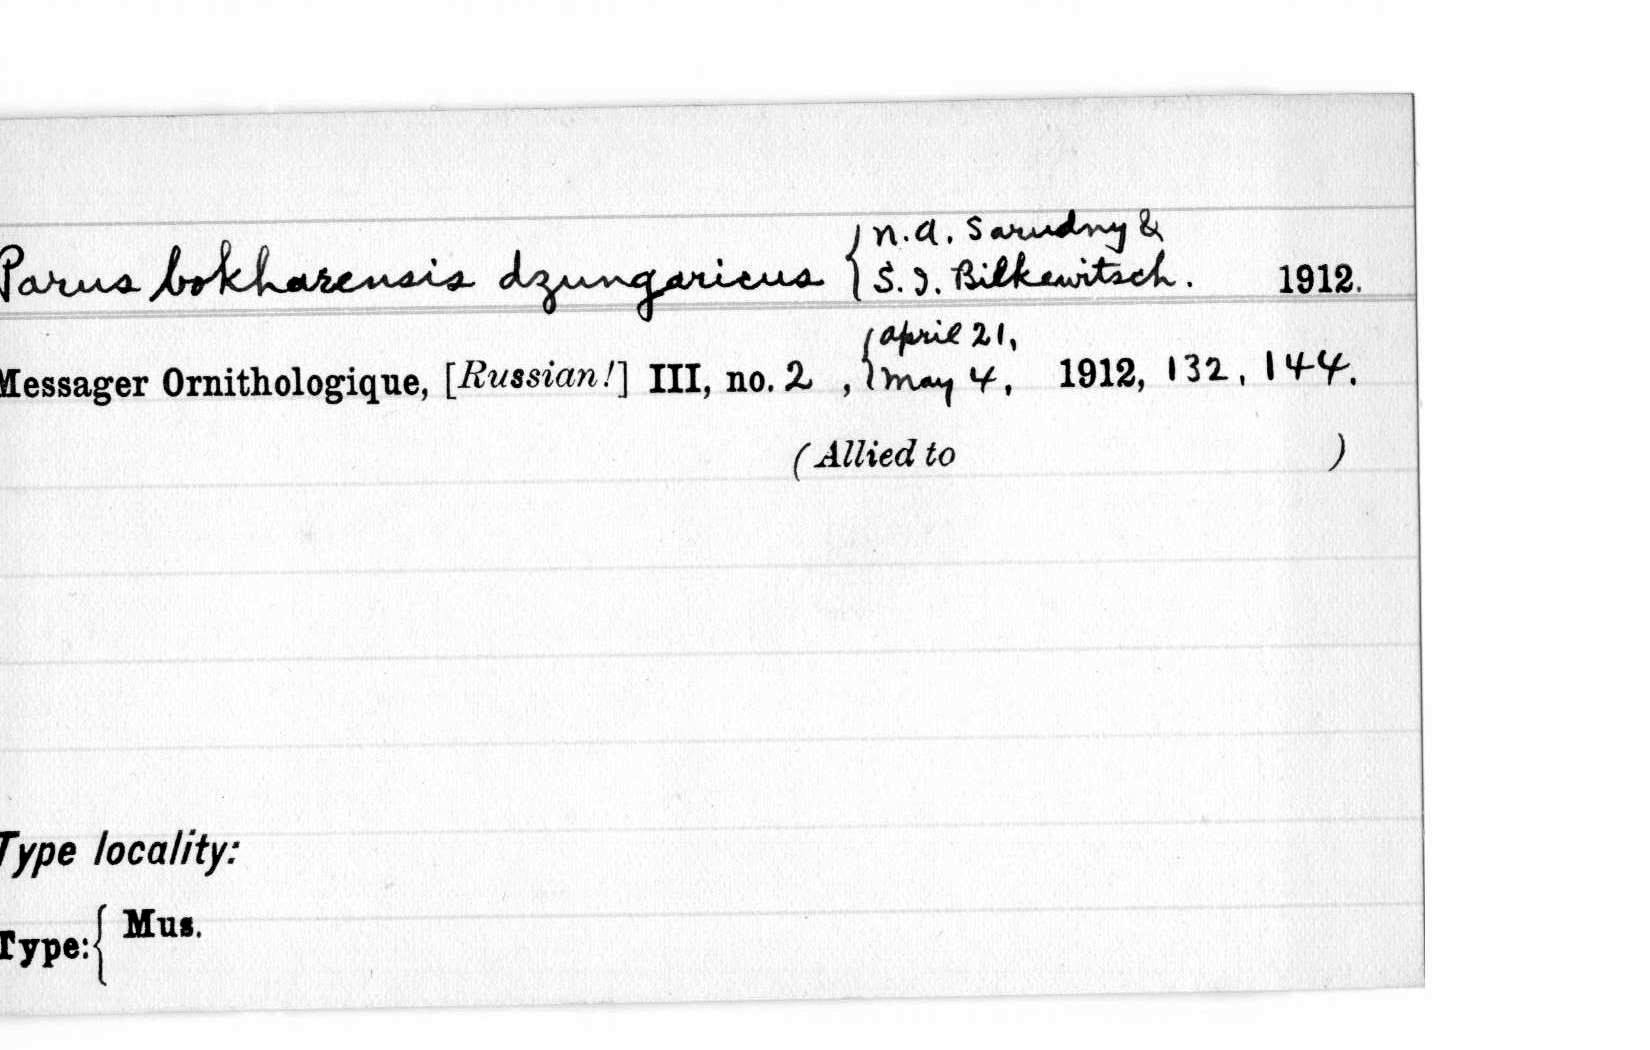 Parus bokharensis dzungaricus { N.A. Sarudny &
S. I. Bilkewitsch. 1912.
Messager Ornithologique, [Russian!] III, no. 2 , { April 21,
May 4, 1912, 132, 144.
(Allied to )
Type locality:
Type: { Mus.